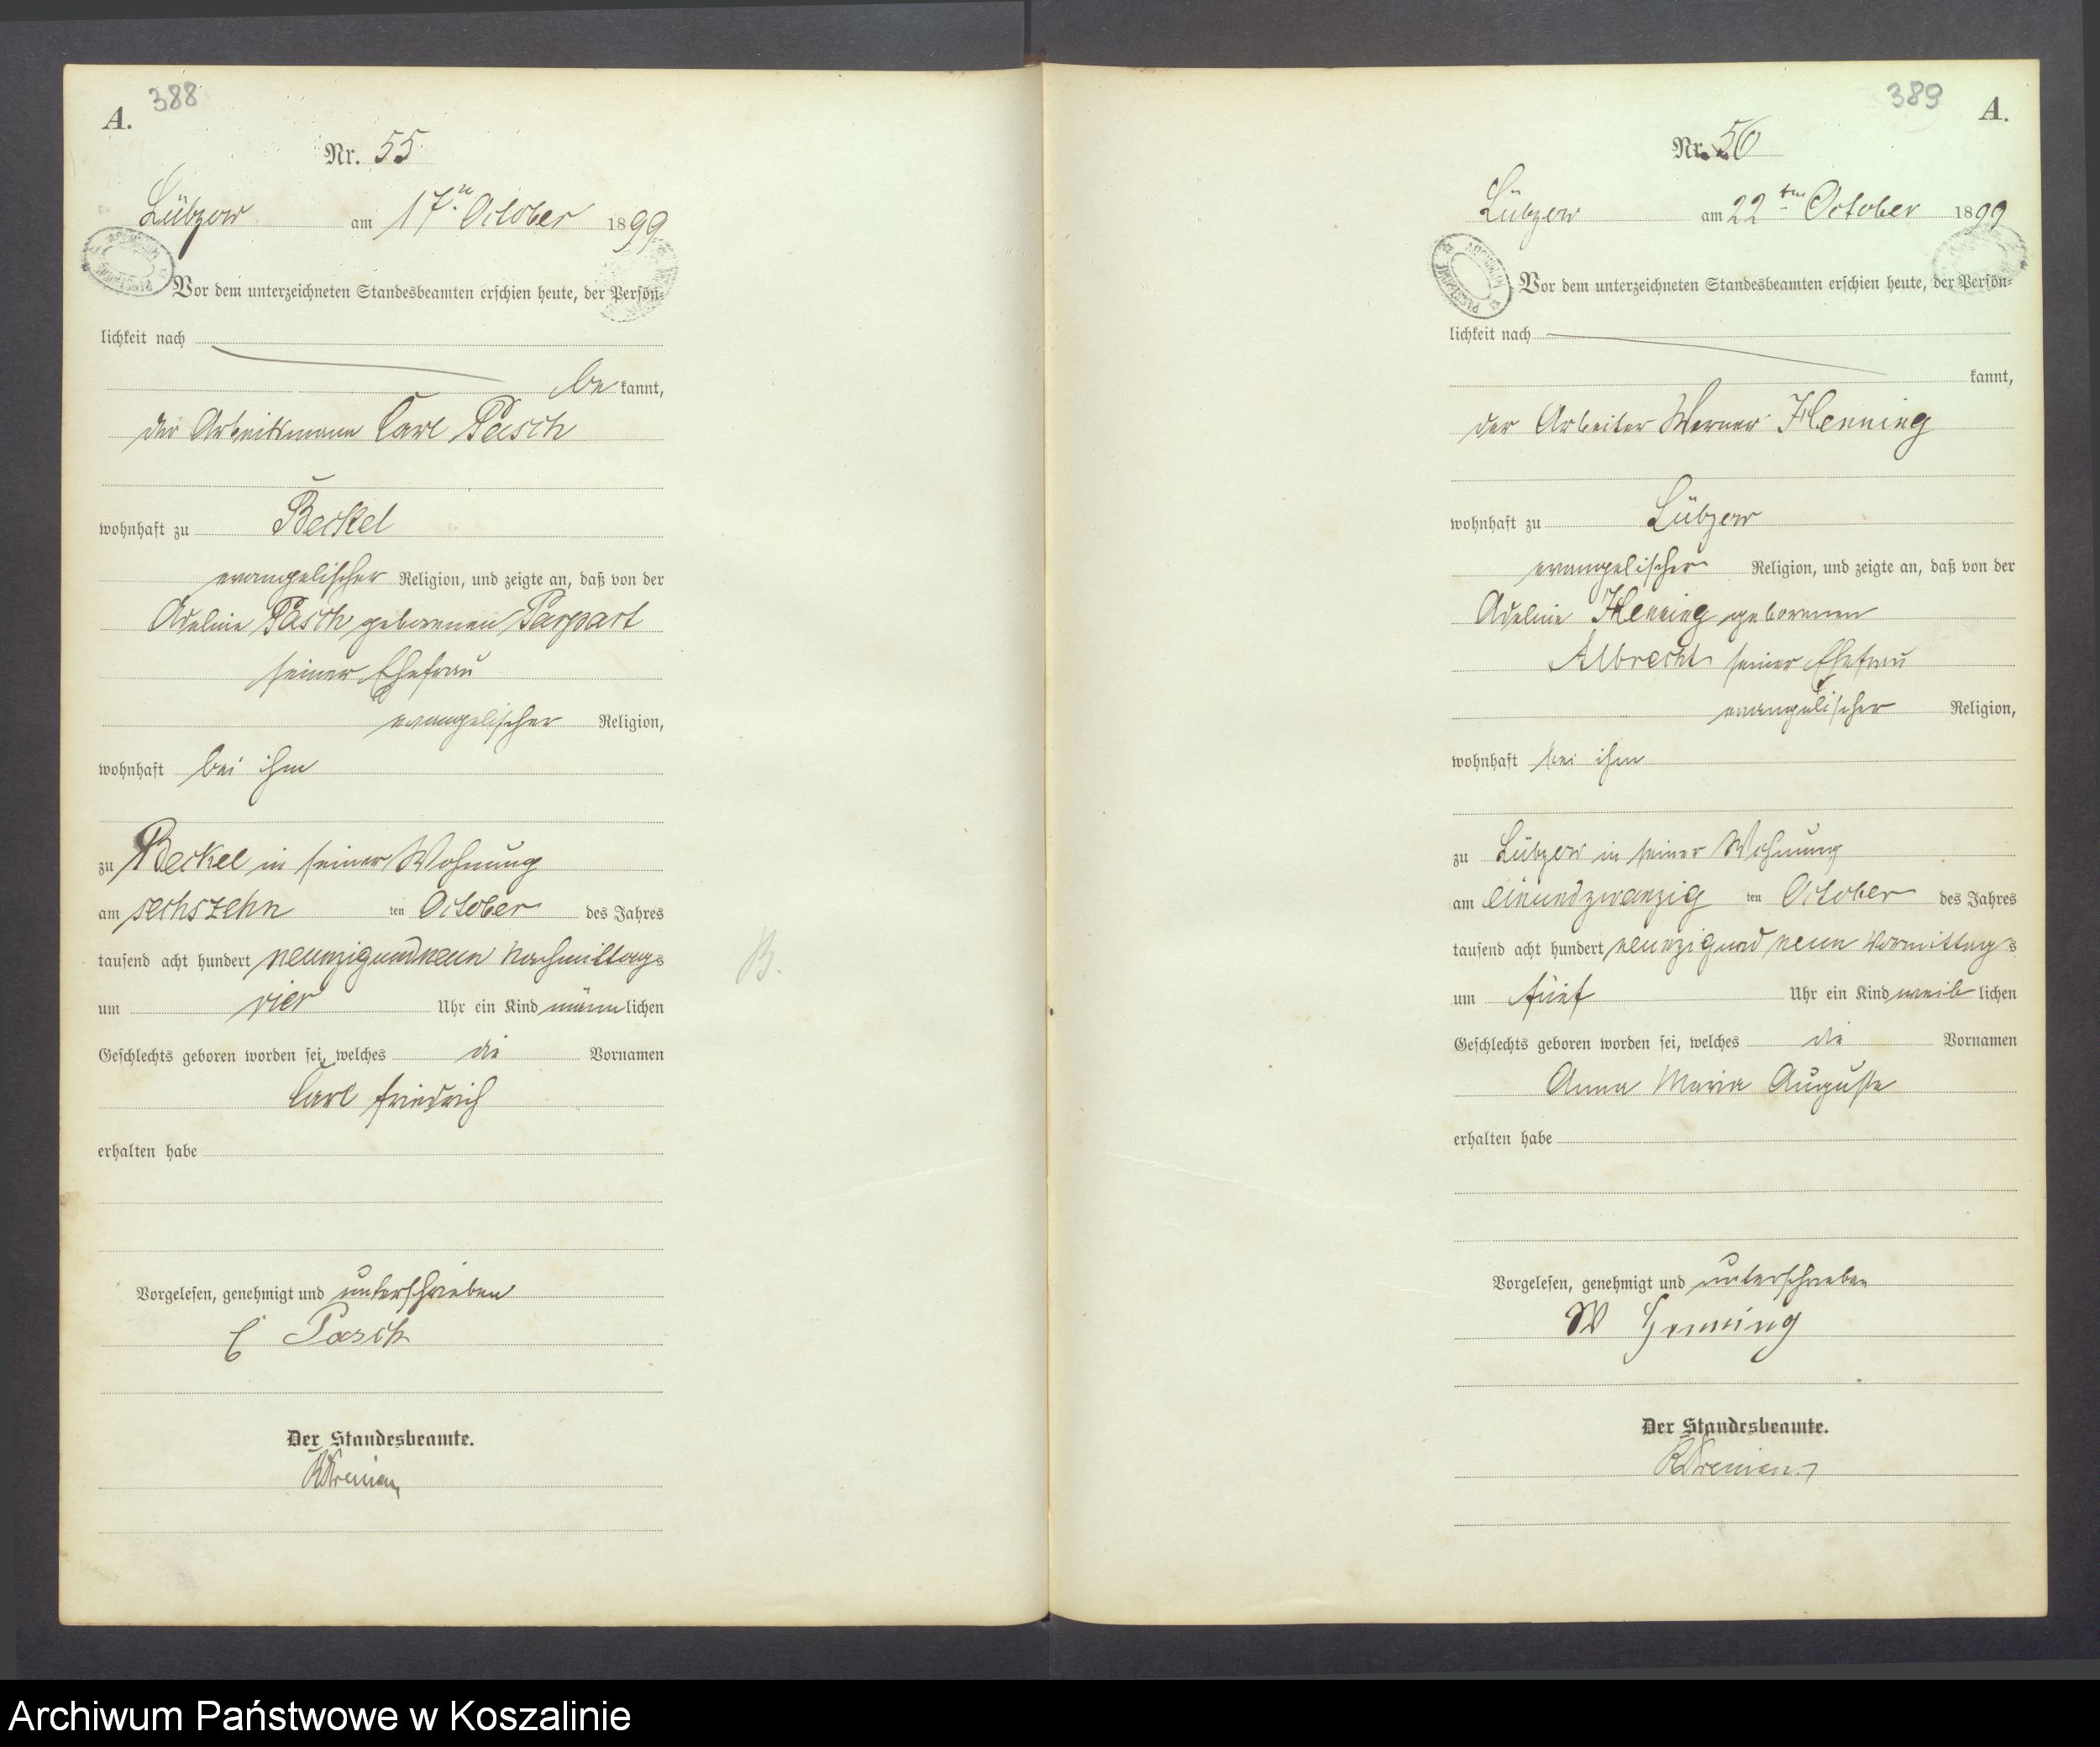 388
A.
Nr. 55
Lübzow am 17.n October 1899
Vor dem unterzeichneten Standesbeamten erschien heute, der Persön-
lichkeit nach
be kannt,
der Arbeitsmann Carl Pasch
wohnhaft zu Beckel
evangelischer Religion, und zeigte an, daß von der
Adeline Pasch geborenen Parpart
seiner Ehefrau
evangelischer Religion,
wohnhaft bei ihm
zu Beckel in seiner Wohnung
am sechszehn ten October des Jahres
tausend acht hundert neunzigundneun Nachmittags
um vier Uhr ein Kind männlichen
Geschlechts geboren worden sei, welches die Vornamen
Carl Friedrich
erhalten habe
B.
Vorgelesen, genehmigt und unterschrieben
C Pasch
Der Standesbeamte.
389
A.
Nr. 56
Lübzow am 22ten October 1899
Vor dem unterzeichneten Standesbeamten erschien heute, der Persön-
lichkeit nach
kannt,
der Arbeiter Werner Henning
wohnhaft zu Lübzow
evangelischer Religion, und zeigte an, daß von der
Adeline Henning geborenen
Albrecht seiner Ehefrau
evangelischer Religion,
wohnhaft bei ihm
zu Lübzow in seiner Wohnung
am einundzwanzig ten October des Jahres
tausend acht hundert neunzigund neun Vormittags
um fünf Uhr ein Kind weiblichen
Geschlechts geboren worden sei, welches die Vornamen
Anna Maria Auguste
erhalten habe
Vorgelesen, genehmigt und unterschrieben
W Henning
Der Standesbeamte.
Archiwum Państwowe w Koszalinie